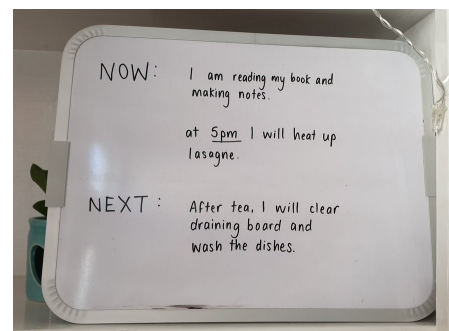 NOW: I am reading my book and
making notes.
at 5pm I will heat up
lasagne.
NEXT: After tea, I will clear
draining board and
wash the dishes.